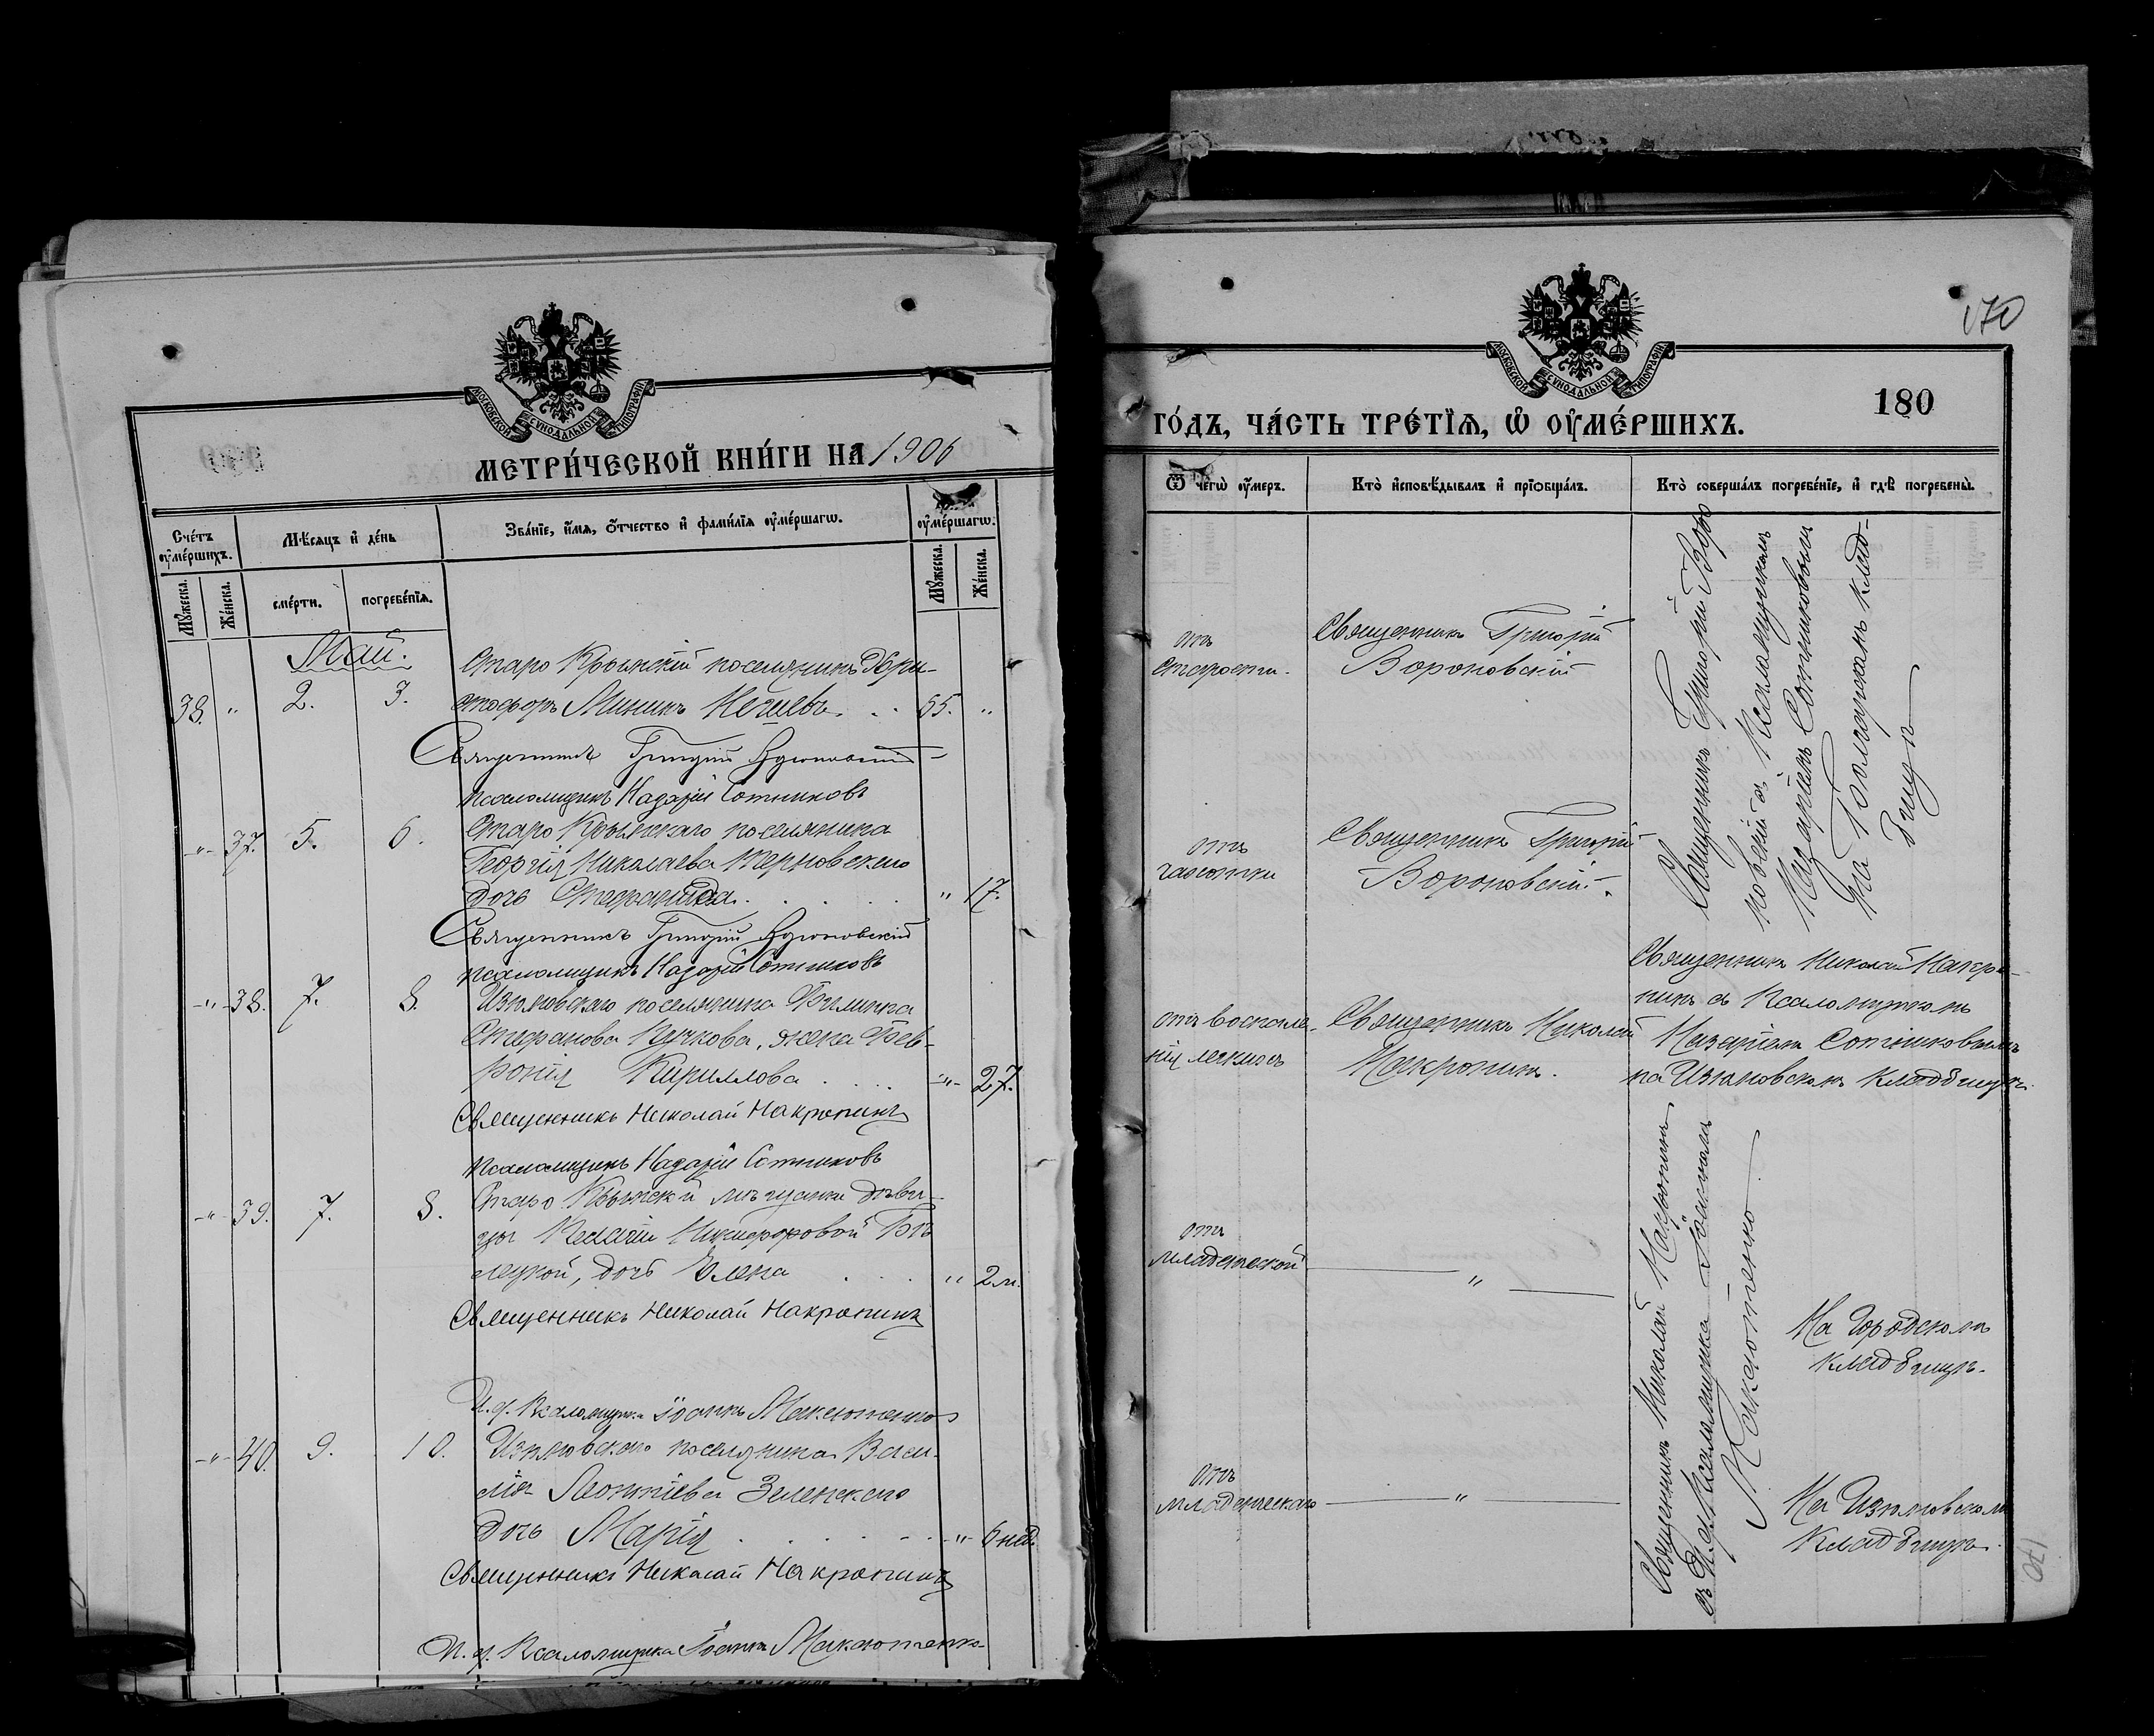 МОСКОВСКОЙ СѴНОДАЛЬНОЙ ТИПОГРАФІИ
МЕТРИ́ЧЕСКОЙ КНИ́ГИ НА 1906
Сче́тъ ᲂу҆ме́ршихъ.
Мѣ́сяцъ и҆ де́нь
Зва́нїе, и҆́мя, ѻ҆́тчество и҆ фами́лїя ᲂу҆ме́ршагѡ.
ᲂу҆ме́ршагѡ.
Мꙋ́жеска.
Же́нска.
сме́рти.
погребе́нїя.
Мꙋ́жеска.
Же́нска.
Май.
Старо Крымскій поселянинъ Хри-
38. " 2. 3. стофоръ Мининъ Нечиевъ. . . "
Священникъ Григорій Вороновскій
псаломщикъ Назарій Сотниковъ
-"- 37. 5. 6. Старо Крымскаго поселянина
Георгія Николаева Терновскаго
дочь Стефанида. . . . . " 17.
Священникъ Григорій Вороновскій
псаломщикъ Назарій Сотниковъ
-"- 38. 7. 8. Изюмовскаго поселянина Филиппа
Стефанова Пучкова, жена Фев-
ронія Кириллова . . . . -"- 27.
Священникъ Николай Накропинъ
псаломщикъ Назарій Сотниковъ
-"- 39. 7. 8. Старо Крымской мѣщанки дѣви-
цы Никифоровой Бѣ
лецкой, дочь Елена . . . . " 2 м.
Священникъ Николай Накропинъ
И. д. Псаломщика Іоаннъ Макаютенко
-"- 40. 9. 10. Изюмовскаго поселянина Васи-
лія Леонтіева Зеленскаго
дочь Марія . . . . . -"- 6 нед.
Священникъ Николай Накропинъ
И. д. Псаломщика Іоаннъ Макаютенко
170
МОСКОВСКОЙ СѴНОДАЛЬНОЙ ТИПОГРАФІИ
180
ГО́ДЪ, ЧА́СТЬ ТРЕ́ТЇѦ, Ѽ ᲂУ҆МЕ́РШИХЪ.
Ѿ чегѡ̀ ᲂу҆́меръ.
Кто̀ и҆сповѣ́дывалъ и҆ прїѡбща́лъ.
Кто̀ соверша́лъ погребе́нїе, и҆ гдѣ̀ погребены̀.
отъ
старости.
Священникъ Григорій
Вороновскій
Священникъ Григорій Воро
новскій съ Псаломщикомъ
Назаріемъ Сотниковымъ
на клад-
бищѣ
отъ
чахотки
Священникъ Григорій
Вороновскій.
отъ воспале-
нія легкихъ
Священникъ Николай
Накропинъ.
Священникъ Николай Накро-
пинъ съ Псаломщикомъ
Назаріемъ Сотниковымъ
на Изюмовскомъ кладбищѣ.
отъ
младенческой
"
Священникъ Николай Накропинъ
съ И. д. Псаломщика Іоанномъ
Макаютенко
На Городскомъ
кладбищѣ.
отъ
младенческаго
"
На Изюмовскомъ
Кладбищѣ.
170